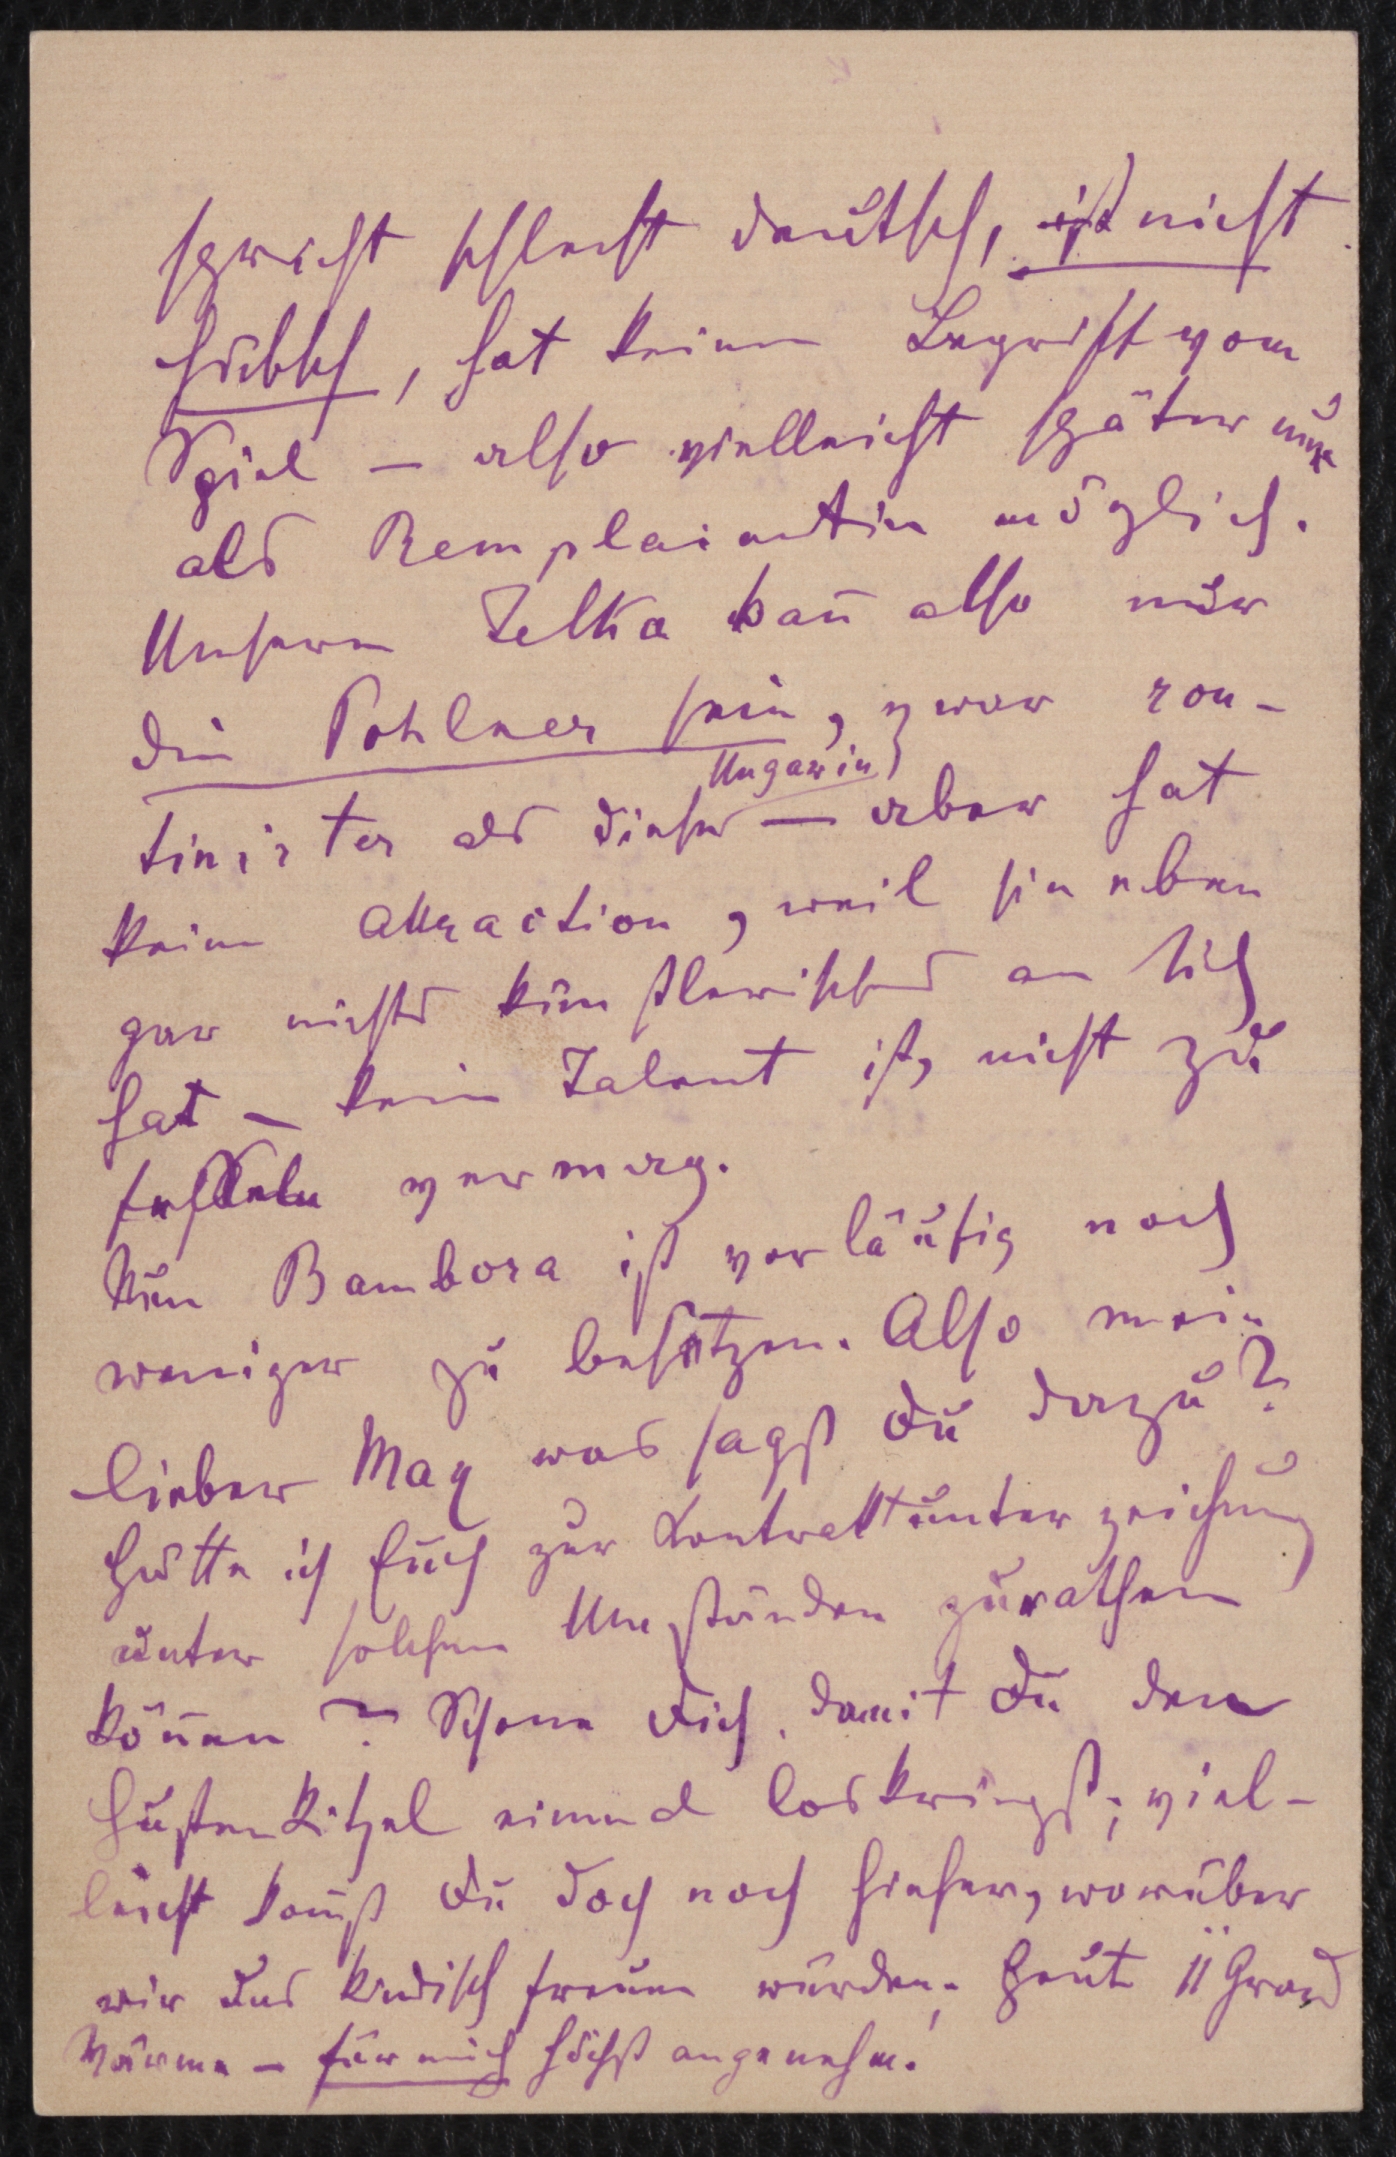 spricht schlecht deutsch, ist nicht
hübsch, hat keinen Begriff vom
Spiel — also vielleicht später nur
als Remplaiantin möglich.
Unsere Jelka kañ also nur
die Pohlner sein, zwar rou-
Ungarin
tinirter als diese — aber hat
keine Attraction, weil sie eben
gar nichts künstlerisches an sich
hat — kein Talent ist, nicht zu
fesseln vermag.
Nun Bambora ist vorläufig noch
weniger zu besetzen. Also mein
lieber Max was sagst Du dazu?
Hätte ich Euch zur Kontraktunterzeichung
unter solchen Umständen zurathen
köñen? Schone Dich, damit Du den
Hustenkitzel einmal loskriegst; viel-
leicht komst Du doch noch hieher, worüber
wir uns kindisch freuen würden. Heute 11 Grad
Wärme — für mich höchst angenehm.